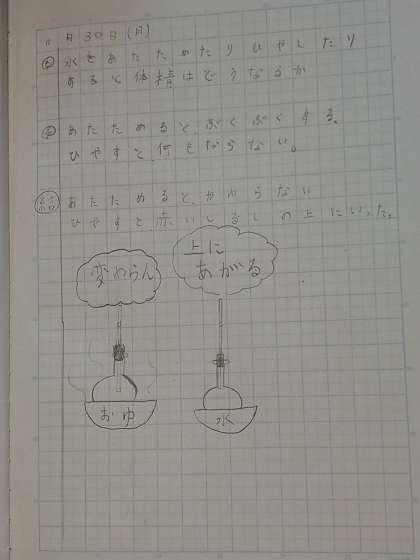 11月30日(月)
め 水をあたためたりひやしたり
すると体積はどうなるか
あたためると、ぶくぶくする。
ひやすと、何もならない。
結 あたためると、かわらない
ひやすと赤いしるしの上にいった。
変わらん
上に
あがる
おゆ
水